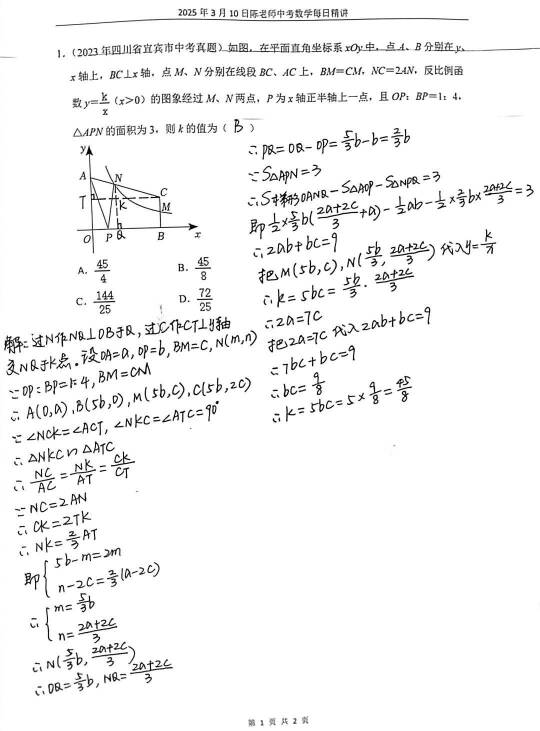 2025年3月10日陈老师中考数学每日精讲
1.（2023年四川省宜宾市中考真题）如图，在平面直角坐标系xOy中，点A、B分别在y、
x轴上，BC⊥x轴，点M、N分别在线段BC、AC上，BM=CM，NC=2AN，反比例函
数y=k/x（x>0）的图象经过M、N两点，P为x轴正半轴上一点，且OP：BP=1：4，
△APN的面积为3，则k的值为（ B ）
y
A
N
T
K
C
M
O
P
Q
B
x
A. 45/4
B. 45/8
C. 144/25
D. 72/25
解：过N作NQ⊥OB于Q，过C作CT⊥y轴
交NQ于K点。设OA=a，OP=b，BM=c，N(m,n)
∵OP：BP=1：4，BM=CM
∴A(0,a)，B(5b,0)，M(5b,c)，C(5b,2c)
∵∠NCK=∠ACT，∠NKC=∠ATC=90°
∴△NKC∽△ATC
∴NC/AC=NK/AT=CK/CT
∵NC=2AN
∴CK=2TK
∴NK=2/3AT
即{5b-m=2m
n-2c=2/3(a-2c)
∴{m=5/3b
n=(2a+2c)/3
∴N(5/3b, (2a+2c)/3)
∴OQ=5/3b，NQ=(2a+2c)/3
∴PQ=OQ-OP=5/3b-b=2/3b
∵S△APN=3
∴S梯形OANQ-S△AOP-S△NPQ=3
即1/2×5/3b((2a+2c)/3+a)-1/2ab-1/2×2/3b×(2a+2c)/3=3
∴2ab+bc=9
把M(5b,c)，N(5b/3, (2a+2c)/3)代入y=k/x
∴k=5bc=5b/3·(2a+2c)/3
∴2a=7c
把2a=7c代入2ab+bc=9
∴7bc+bc=9
∴bc=9/8
∴k=5bc=5×9/8=45/8
第 1 页 共 2 页